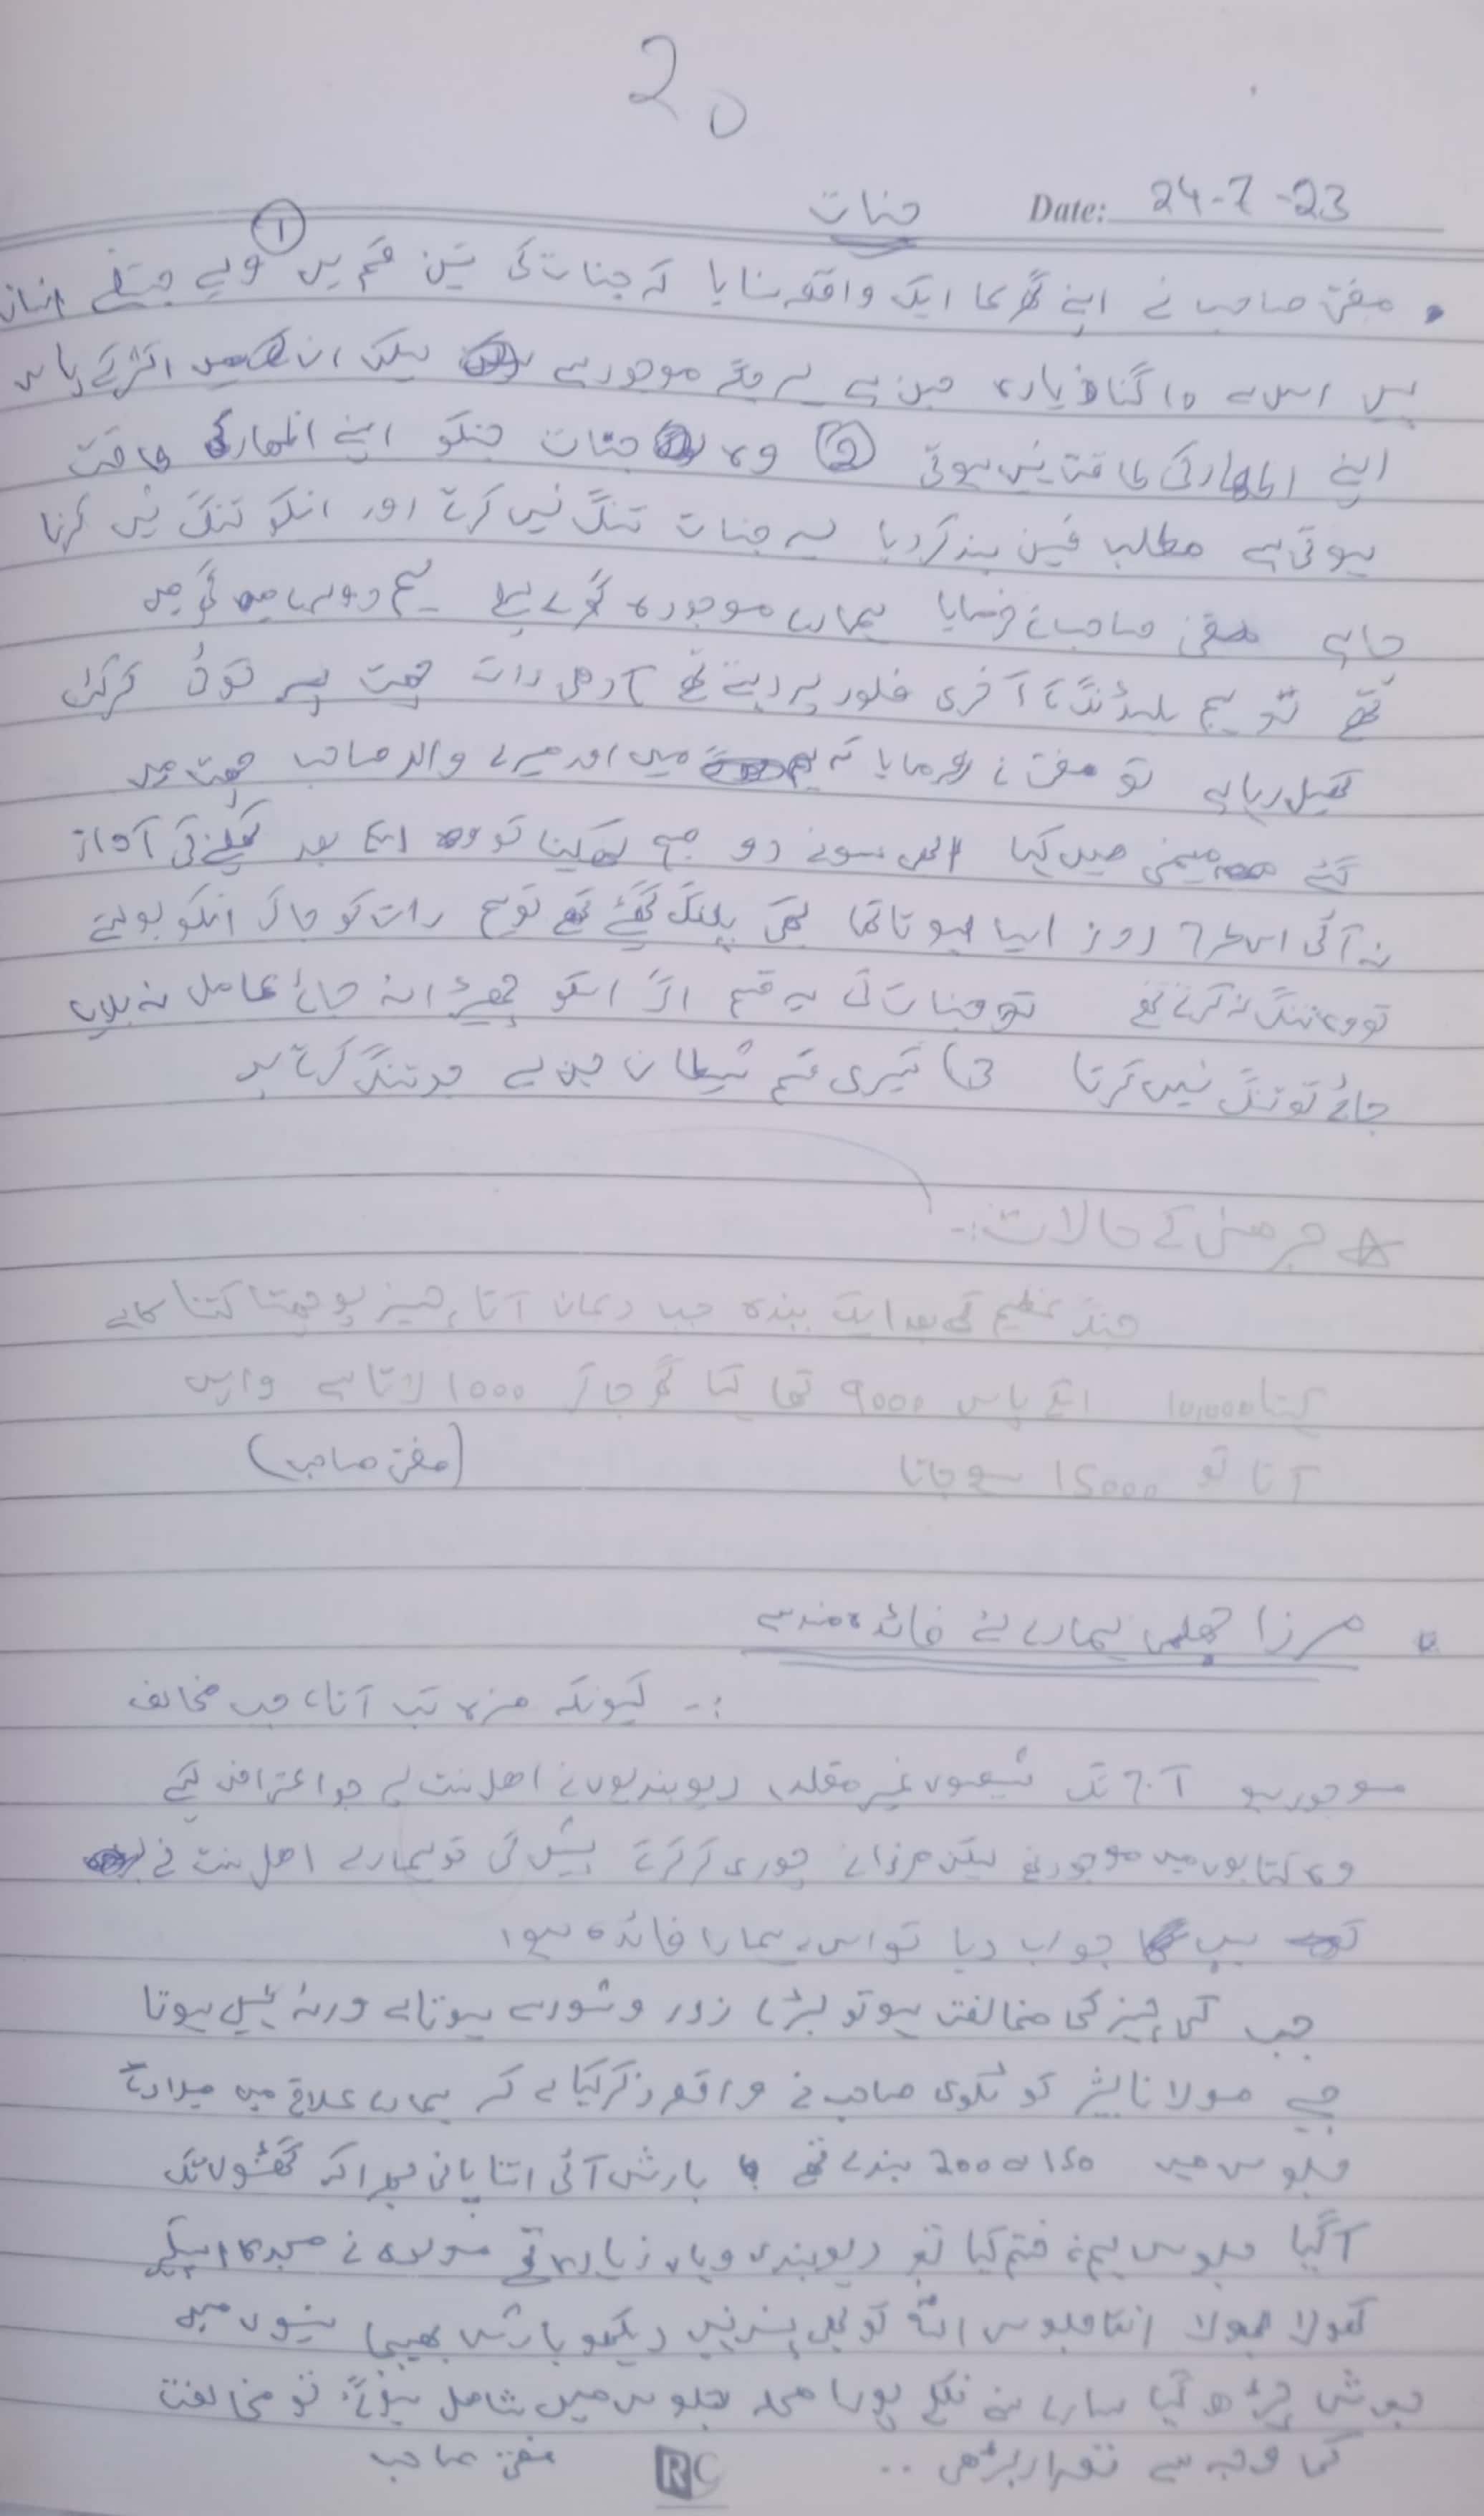 20
جنات Date: 24-7-23
• مفتی صاحب نے اپنے گھر کا ایک واقعہ سنایا کہ جنات کی تین قسم ہیں ① ویسے جتنے انسان
ہیں اس سے 10 گنا زیادہ جن ہے ہر جگہ موجود ہے لیکن ان میں اکثر کے پاس
اپنے اظہار کی طاقت نہیں ہوتی ② وہ جنات جنکو اپنے اظہار کی طاقت
ہوتی ہے مطلب فین بند کر دیا یہ جنات تنگ نہیں کرتے اور انکو تنگ نہیں کرنا
چاہیے مفتی صاحب نے فرمایا ہمارے موجودہ گھر سے پہلے ہم دوسرے گھر میں
تھے تو ہم بلڈنگ کے آخری فلور پر رہتے تھے آدھی رات چھت پر کوئی کرکٹ
کھیل رہا ہے تو مفتی نے فرمایا کہ میں اور میرے والد صاحب چھت میں
گئے میمنی میں کہا ابھی سونے دو صبح کھیلنا تو اسکے بعد کھیلنے کی آواز
نہ آئی اس طرح روز ایسا ہوتا تھا کبھی پلنگ تھے تو ہم رات کو جا کر انکو بولتے
تو وہ تنگ نہ کرتے تھے تو جنات کی یہ قسم اگر اسکو چھیڑا نہ جائے عامل نہ بلایا
جائے تو تنگ نہیں کرتا 3) تیسری قسم شیطان جن ہے جو تنگ کرتے ہیں
☆ جرمنی کے حالات :-
جنگ عظیم کے بعد ایک بندہ جب دکان آتا، چیز پوچھتا کتنا کا ہے
کہتا 10,000 اسکے پاس 9000 تھا کہتا گھر جا کر 1000 لاتا ہے واپس
آتا تو 15000 ہو جاتا (مفتی صاحب)
• مرزا جہلمی ہمارے لئے فائدہ مند ہے
:- کیونکہ مزہ تب آتا، جب مخالف
موجود ہو آج تک شیعوں غیر مقلد، دیوبندیوں نے اہل سنت پے جو اعتراض کیے
وہ کتابوں میں موجود تھے لیکن مرزا نے چوری کر کر کے پیش کی تو ہمارے اہل سنت نے
سب کا جواب دیا تو اس سے ہمارا فائدہ ہوا
جب کسی چیز کی مخالفت ہو تو بڑے زور و شور سے ہوتا ہے ورنہ نہیں ہوتا
جیسے مولانا بشیر کوٹلوی صاحب نے واقعہ ذکر کیا ہے کہ ہمارے علاقے میں میلاد کے
جلوس میں 150 200 بندے تھے بارش آئی اتنا پانی بھرا کہ گھٹنوں تک
آگیا جلوس ہم نے ختم کیا تو دیوبندی وہاں زیادہ تھے مولوی نے مسجد کا اسپیکر
کھولا بولا انکا جلوس اللہ کو بھی پسند نہیں دیکھو بارش بھیجا سنیوں میں
جوش چڑھ گیا سارے سنی نکلے پورا محلہ جلوس میں شامل ہوگئے تو مخالفت
کی وجہ سے تعداد بڑھی .. مفتی صاحب
RC